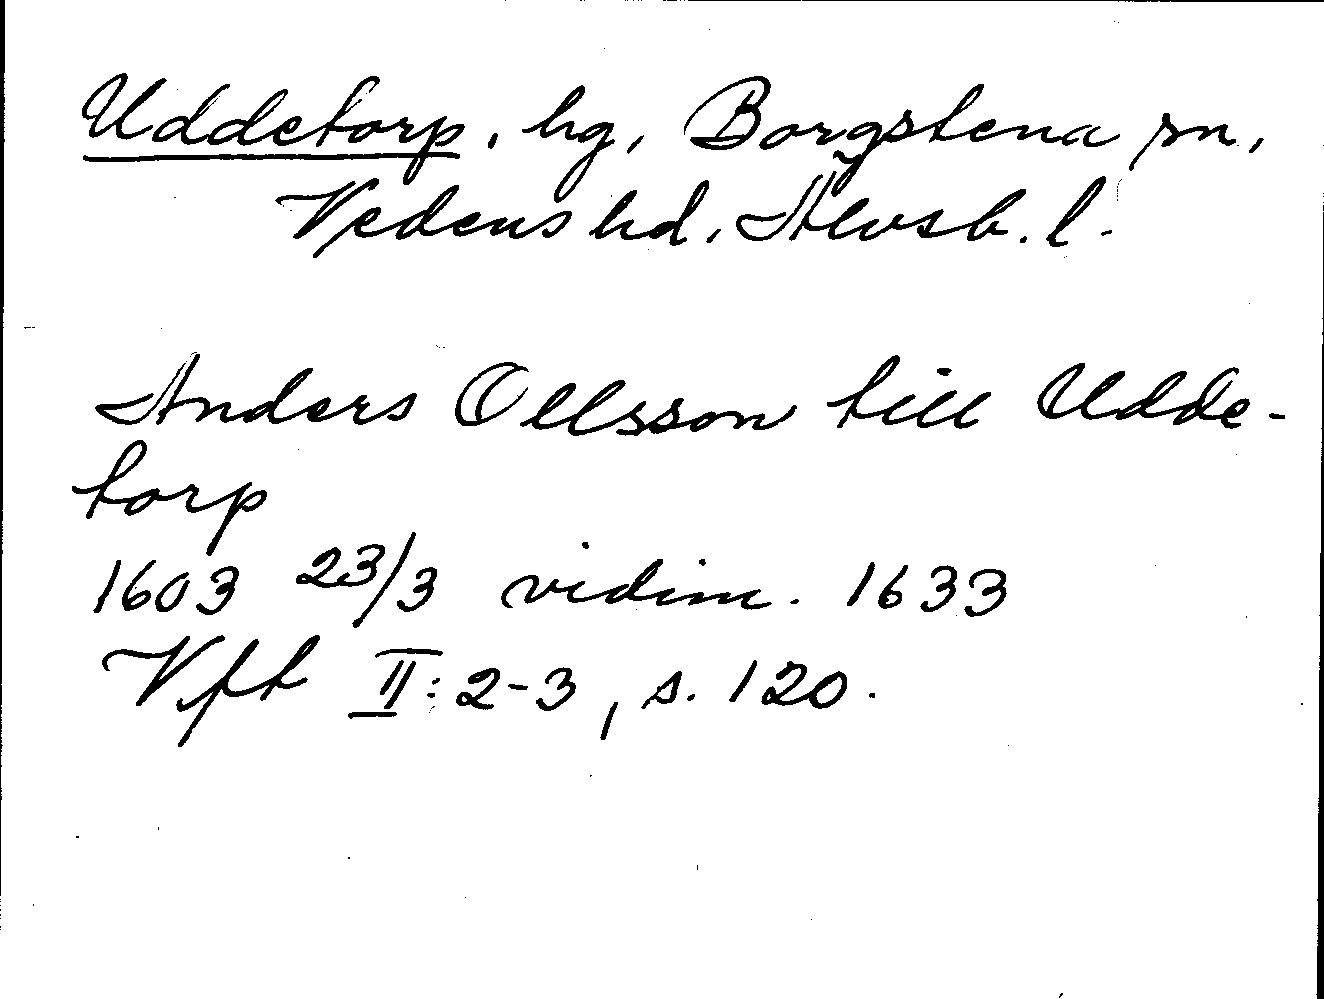 Uddetorp, hg, Borgstena sn,
Vedens hd. Älvsb. l.
Anders Ollsson till Udde-
torp
1603 23/3 vidim. 1633
Vft II: 2-3, s. 120.